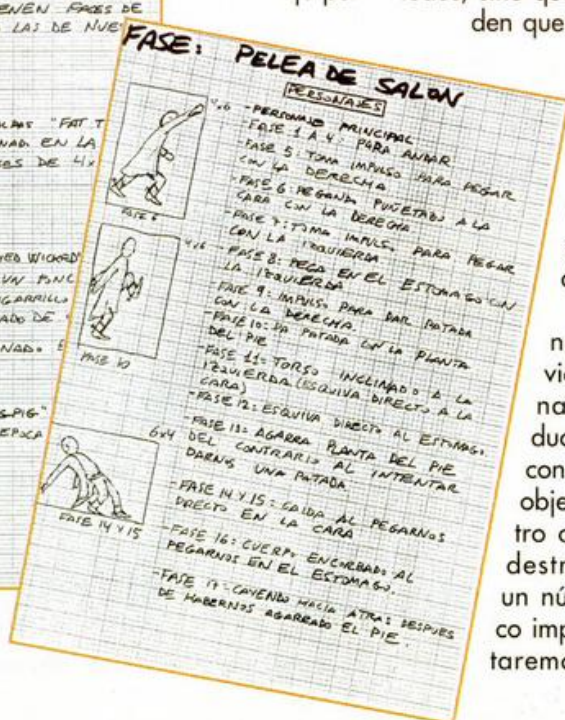 ENEN FASES DE
LAS DE NUE
"FAT T
NAD. EN LA
SES DE 4x
WICKED"
UN PUNC
IGARRILLO
ADO DE
NAD. E
S.PIG"
EPOCA
den que
FASE: PELEA DE SALON
PERSONAJES
4x6 - PERSONAJE PRINCIPAL
- FASE 1 A 4: PARA ANDAR
- FASE 5: TOMA IMPULSO PARA PEGAR
CON LA DERECHA
- FASE 6: PEGANDO PUÑETAZO A LA
CARA CON LA DERECHA
FASE 6
- FASE 7: TOMA IMPULSO PARA PEGAR
CON LA IZQUIERDA
4x6 - FASE 8: PEGA EN EL ESTOMAGO CON
LA IZQUIERDA
- FASE 9: IMPULSO PARA DAR PATADA
CON LA DERECHA.
- FASE 10: DA PATADA CON LA PLANTA
DEL PIE
FASE 10
- FASE 11: TORSO INCLINADO A LA
IZQUIERDA (ESQUIVA DIRECTO A LA
CARA)
- FASE 12: ESQUIVA DIRECTO AL ESTOMAGO.
6x4 - FASE 13: AGARRA PLANTA DEL PIE
DEL CONTRARIO AL INTENTAR
DARNOS UNA PATADA
- FASE 14 Y 15: CAIDA AL PEGARNOS
DRECTO EN LA CARA
FASE 14 Y 15
- FASE 16: CUERPO ENCORBADO AL
PEGARNOS EN EL ESTOMAGO.
- FASE 17: CAYENDO HACIA ATRAS DESPUES
DE HABERNOS AGARRADO EL PIE.
n
vie
na
duc
con
obje
tro c
destr
un nú
co imp
taremo